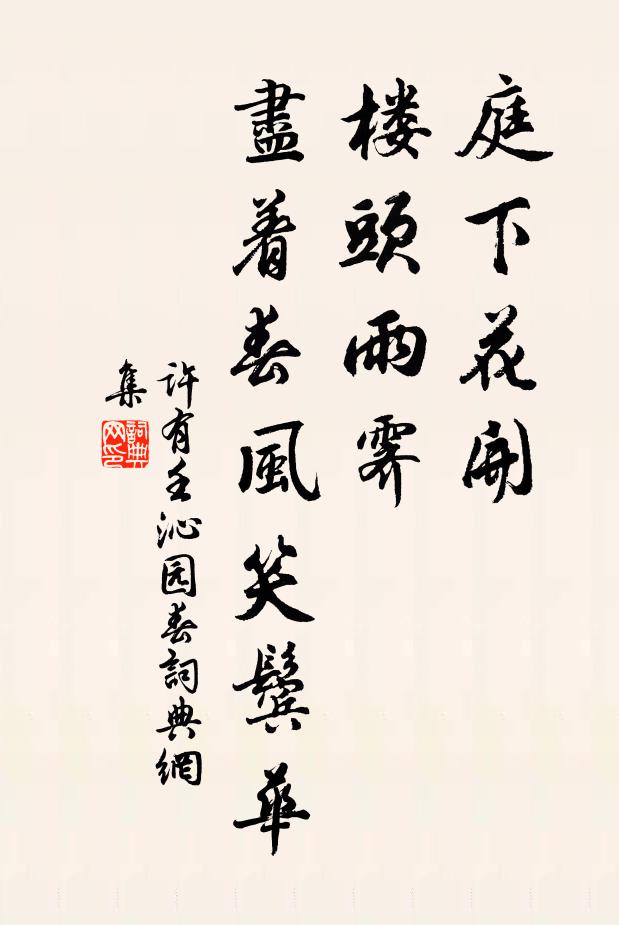 庭下花開
楼頭雨霽
盡着春風笑鬓華
许有壬沁园春詞典網
集
詞典网印